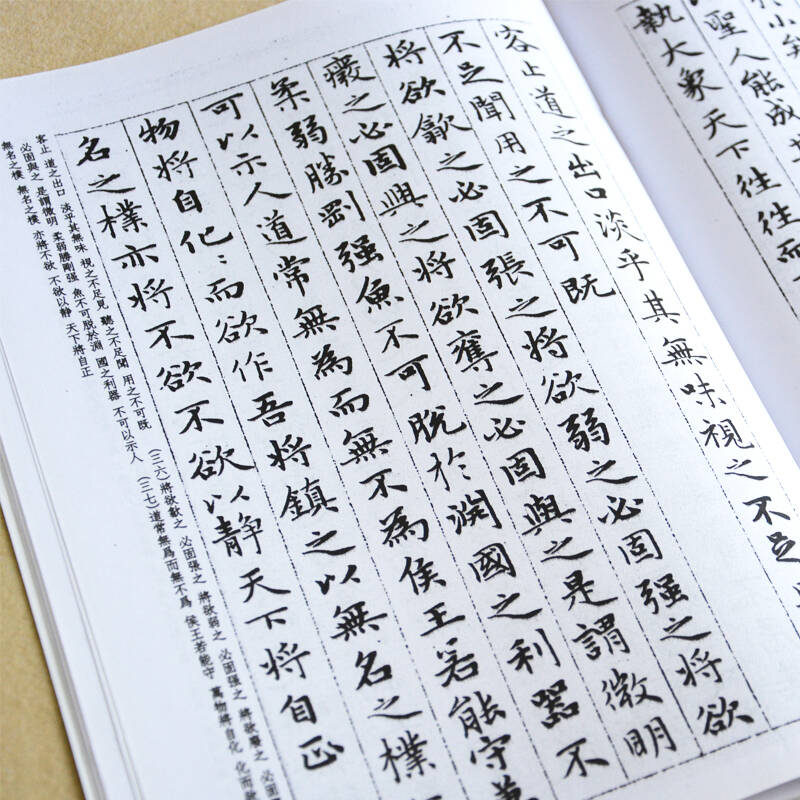 於小矣
以聖人能成其
執大象天下往往而
客止道之出口淡乎其無味視之不足
不足聞用之不可既
將欲歙之必固張之將欲弱之必固强之將欲
廢之必固與之將欲奪之必固與之是謂微明
柔弱勝剛强魚不可脫於淵國之利器不
可以示人道常無為而無不為侯王若能守萬
物將自化〻而欲作吾將鎮之以無名之樸
名之樸亦將不欲不欲以静天下將自正
客止 道之出口 淡乎其無味 視之不足見 聽之不足聞 用之不可既 (三六)將欲歙之 必固張之 將欲弱之 必固强之 將欲廢之 必固
必固與之 是謂微明 柔弱勝剛强 魚不可脫於淵 國之利器 不可以示人 (三七)道常無爲而無不爲 侯王若能守 萬物將自化 化而欲
無名之樸 無名之樸 亦將不欲 不欲以静 天下將自正